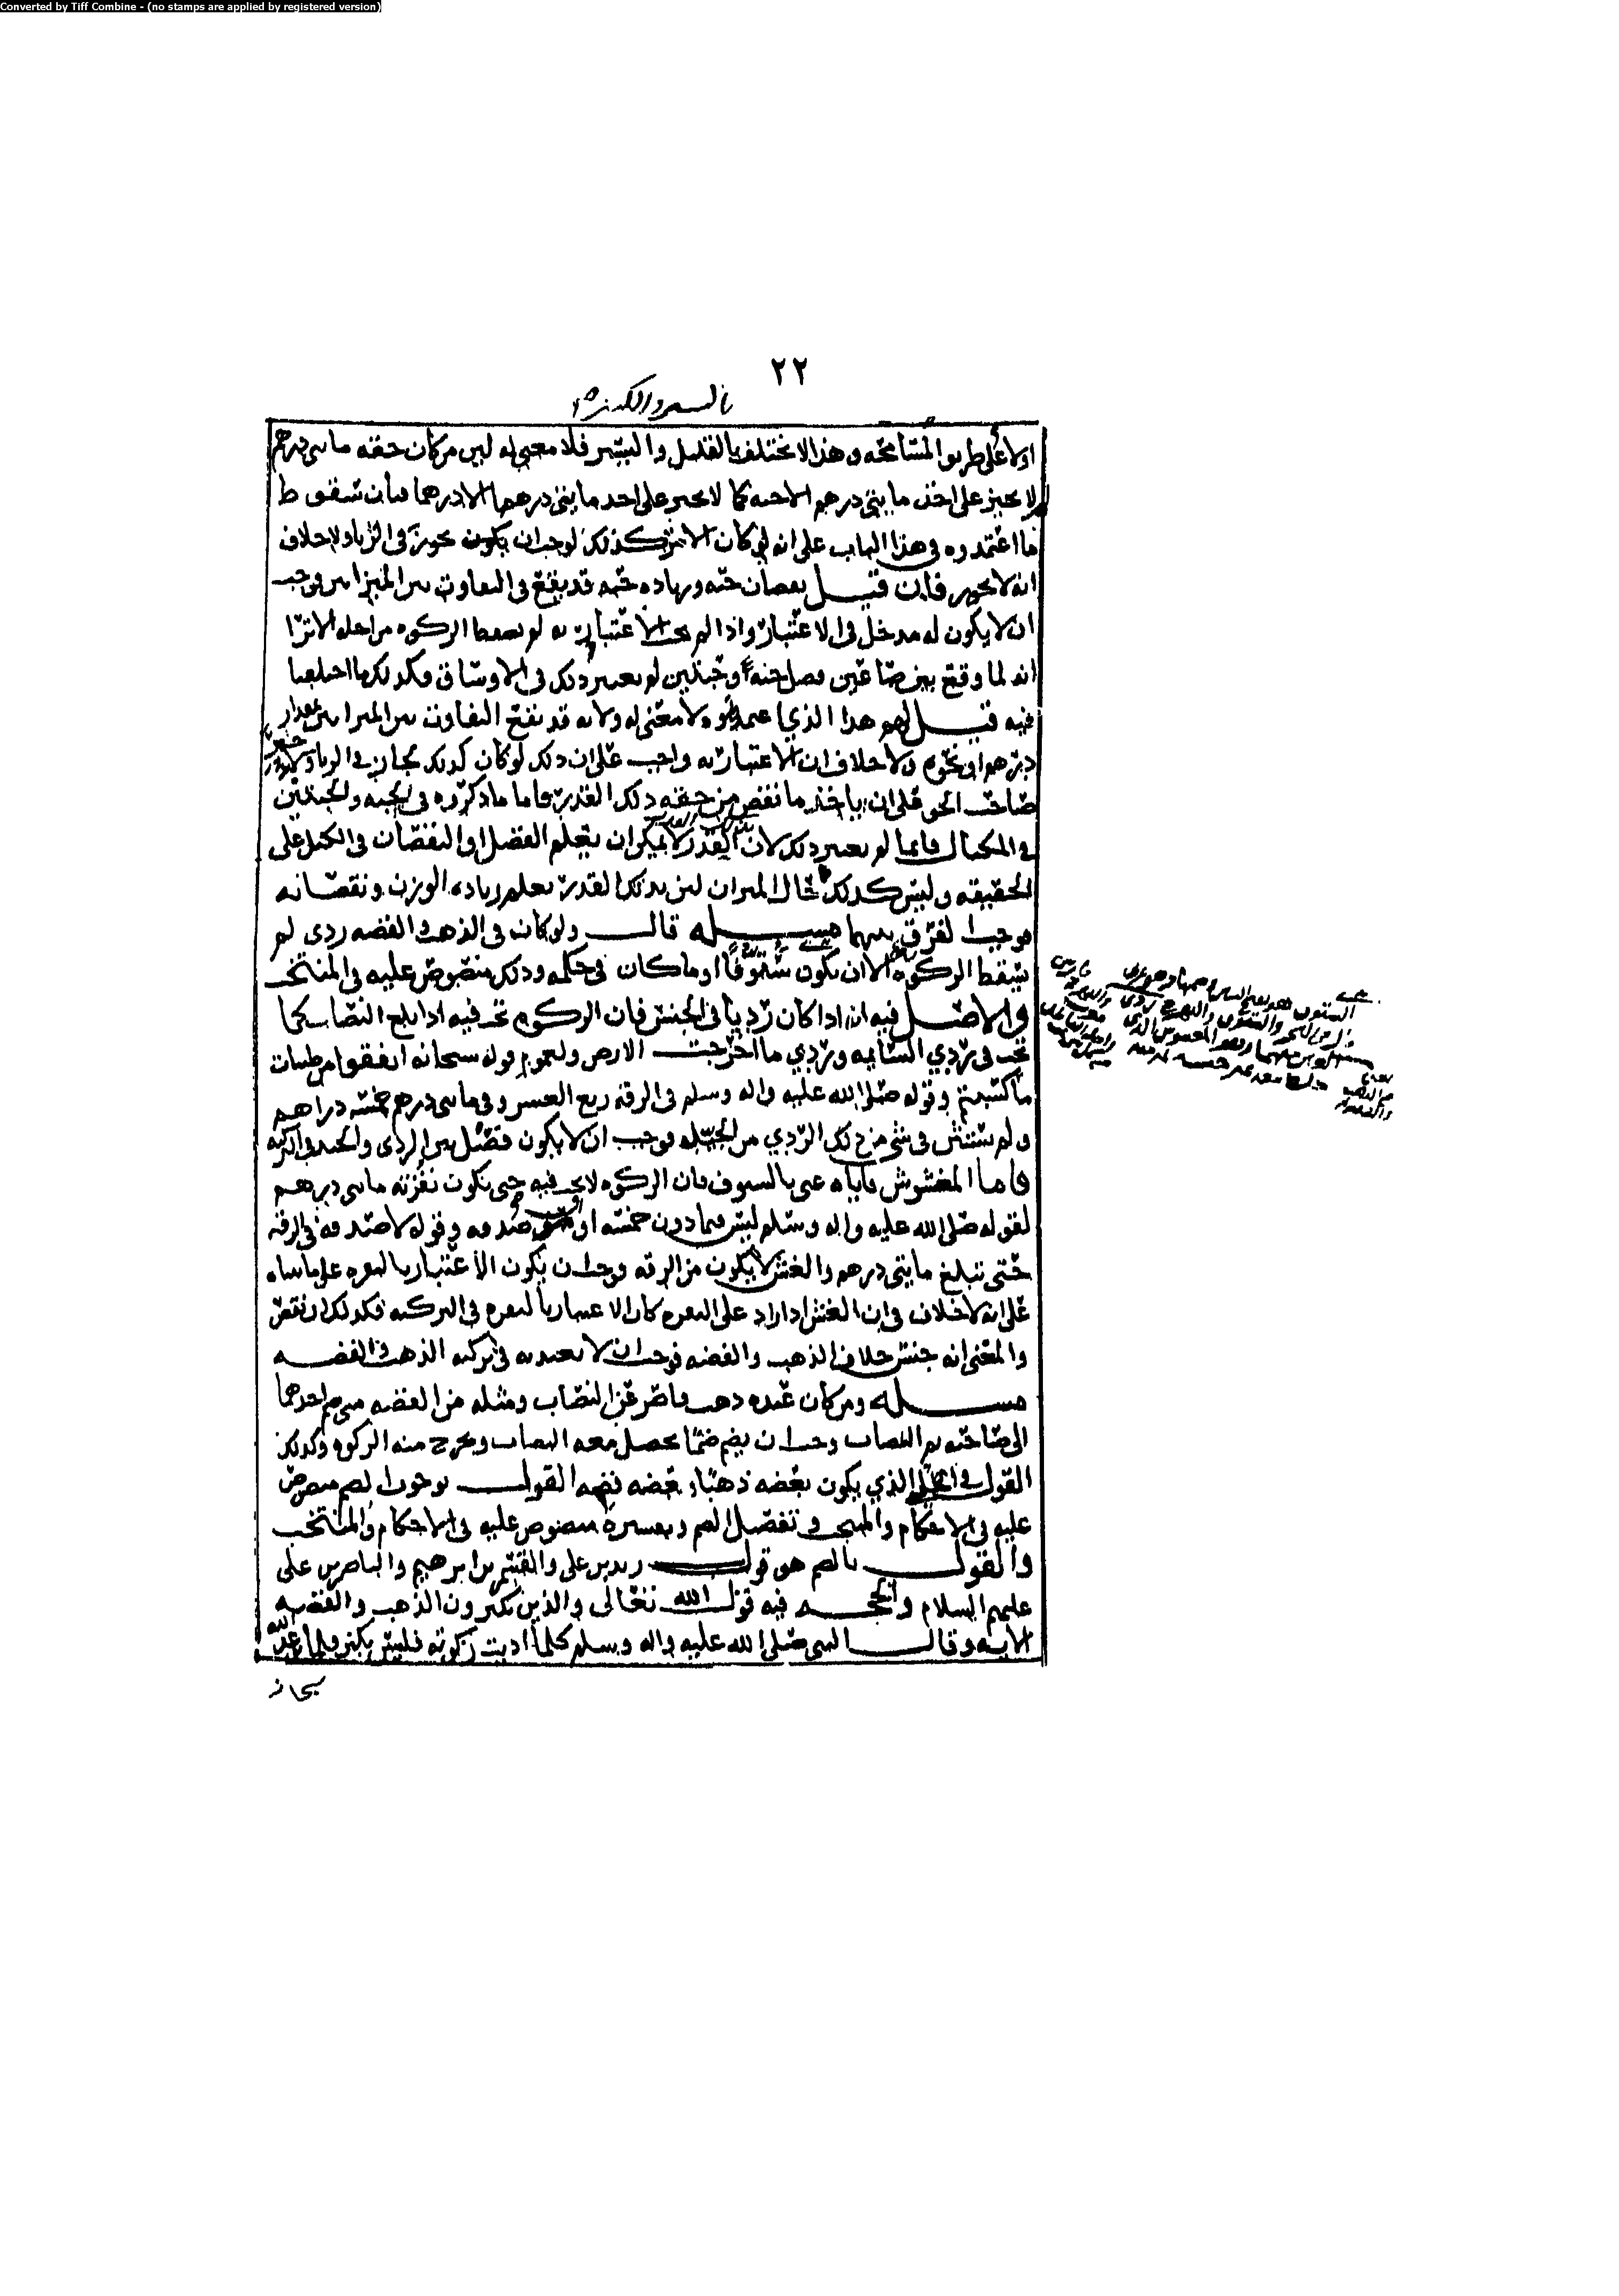 Converted by Tiff Combine - (no stamps are applied by registered version)
٢٢
اولا على طريق المسامحة وهذا لا يختلف بالقليل واليسير فلا معنى له ليس من كان حقه مايتي درهم
لا يجبر على اخذ مايتي درهم الا حبه كما لا يجبر على اخذ مايتي درهم الا درهما فبان سقوط
ما اعتمدوه في هذا الباب على انه لو كان الامر كذلك لوجب ان يكون يجوز في الزيادة ولا خلاف
انه لا يجوز فان قيل نقصان حبه وزياده حبه قد يقع في التفاوت بين الميزانين فوجب
ان لا يكون له مدخل في الاعتبار واذا لم يجب الاعتبار به لم يسقط الزكوه من اجله الا ترا
انه لما وقع بين صاعين فضل حبه او حبتين لم يعتبر ذلك في الاوساق فكذلك ما اختلفنا
فيه قيل لهم هذا الذي اعتمدتموه لا معنى له ولانه قد يقع التفاوت بين الميزانين بمقدار
درهم او نحوه ولا خلاف ان الاعتبار به واجب على ان ذلك لو كان كذلك لجاز في الربا ولاجبر
صاحب الحق على ان ياخذ ما نقص من حقه ذلك القدر فاما ما ذكروه في الحبه والحبتين
في المكيال فانما لم يعتبر ذلك لان القدر لا يمكن ان يعلم الفضل او النقصان في الكيل على
الحقيقه وليس كذلك حال الميزان لان بذلك القدر يعلم زياده الوزن ونقصانه
فوجب الفرق بينهما مسئله قال ولو كان في الذهب والفضه ردى لم
يسقط الزكوه الا ان يكون ستوقا او ما كان في حكمه وذلك منصوص عليه في المنتخب
والاصل فيه انه اذا كان رديا في الجنس فان الزكوه تجب فيه اذا بلغ النصاب كما
تجب في ردي السايمه وردي ما اخرجت الارض ولعموم قوله سبحانه انفقوا من طيبات
ما كسبتم وقوله صلى الله عليه واله وسلم في الرقه ربع العشر وفي مايتي درهم خمسه دراهم
ولم يستثن في شي من ذلك الردي من الجيد فوجب ان لا يكون فصل بين الردى والجيد في الزكوه
فاما المغشوش فاياه عنى بالستوق فان الزكوه لا تجب فيه حتى يكون نقرته مايتي درهم
لقوله صلى الله عليه واله وسلم ليس فيما دون خمسه اواق صدقه وقوله لا صدقه في الرقه
حتى تبلغ مايتي درهم والغش لا يكون من الرقه فوجب ان يكون الاعتبار بالنقره على ما بيناه
على انه لا خلاف في ان الغش اذا زاد على النقره كان الاعتبار بالنقره في التزكيه فكذلك ان نقص
والمعنى انه جنس خلاف الذهب والفضه فوجب ان لا يعتد به في تزكيه الذهب والفضه
مسئله ومن كان عنده ذهب قاصر عن النصاب ومثله من الفضه متى ضم احدهما
الى صاحبه تم النصاب وجب ان يضم ضما يحصل معه النصاب ويخرج منه الزكوه وكذلك
القول في الحلي الذي يكون بعضه ذهبا وبعضه فضه القول بوجوب الضم منصوص
عليه في الاحكام والمنتخب وتفصيل الضم وتفسيره منصوص عليه في الاحكام والمنتخب
والقول بالضم هو قول زيد بن علي والقسم بن ابرهيم والناصر بن علي
عليهم السلام والحجه فيه قول الله تعالى والذين يكنزون الذهب والفضه
الايه وقال النبي صلى الله عليه واله وسلم كلما اديت زكوته فليس بكنز فلما اوعد الله